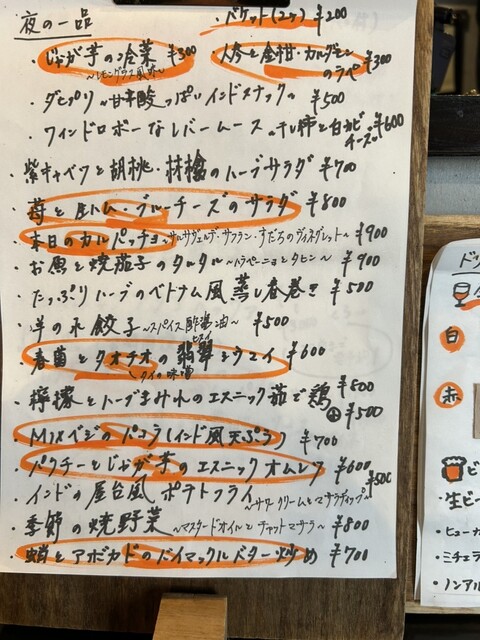 夜の一品
・バケット(2ヶ) ¥200
・じゃが芋の冷菜 ¥300
~レモングラス風味~
・人参と金柑・カルダモンのラペ ¥300
・ダヒプリ ~甘辛酸っぱいインドスナック~ ¥500
・ワインドロボーなレバームース ~干し柿と白カビチーズ~ ¥600
・紫キャベツと胡桃・林檎のハーブサラダ ¥700
・苺と生ハム・ブルーチーズのサラダ ¥800
・本日のカルパッチョ ~サルサヴェルデ・サフラン・すだちのヴィネグレット~ ¥900
・お魚と焼茄子のタルタル ~ハラペーニョとタヒン~ ¥900
・たっぷりハーブのベトナム風蒸し春巻 ¥500
・羊の水餃子 ~スパイス酢醤油~ ¥500
・春菊とタオチオの翡翠ミウェイ ¥600
ヒスイ
タイの味噌
・檸檬とハーブまみれのエスニック茹で鶏 ¥800
¥500
・MIXベジのパコラ(インド風天ぷら) ¥700
・パクチーとじゃが芋のエスニックオムレツ ¥600
・インドの屋台風ポテトフライ ~サワークリームとマサラディップ~ ¥500
・季節の焼野菜 ~マスタードオイルとチャットマサラ~ ¥800
・蛸とアボカドのパイマックルバター炒め ¥700
ドリ
白
赤
ビ
生ビー
・ヒューガ
・ミチェラ
・ノンアル